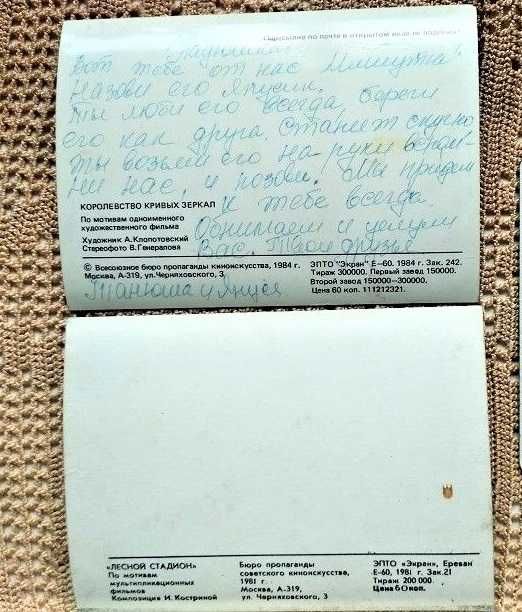 Пересылке по почте в открытом виде не подлежит
Вот тебе "от нас Мишутка".
Назови его Япусик.
Ты люби его всегда, береги
его как друга. Станет скучно
ты возьми его на руки вспом-
ни нас, и позови. Мы придём
к тебе всегда.
КОРОЛЕВСТВО КРИВЫХ ЗЕРКАЛ
По мотивам одноименного
художественного фильма
Обнимаем и целуем
Художник А.Клопотовский
Стереофото В.Генералова
Вас. Твои друзья
© Всесоюзное бюро пропаганды киноискусства, 1984 г.
Москва, А-319, ул.Черняховского, 3
ЭПТО "Экран" Е-60. 1984 г. Зак. 242.
Тираж 300000. Первый завод 150000.
Второй завод 150000—300000.
Цена 60 коп. 111212321.
Танюша и
«ЛЕСНОЙ СТАДИОН»
По мотивам
мультипликационных
фильмов
Композиция И. Костриной
Бюро пропаганды
советского киноискусства,
1981 г.
Москва, А-319,
ул. Черняховского, 3
ЭПТО «Экран», Ереван
Е-60, 1981 г. Зак.21
Тираж 200 000.
Цена 60 коп.